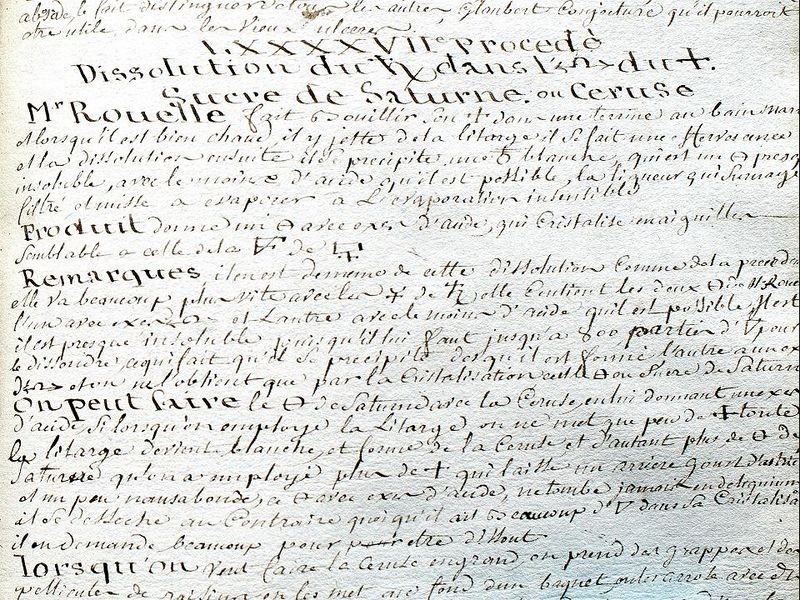 absède, le fait distinguer de tous les autres, Glaubert Conjecture qu'il pourroit
être utile, dans les vieux ulceres
LXXXXVIIe procedè
Dissolution du ♄ dans du +.
Sucre de Saturne. ou Ceruse
Mr Rouelle fait Bouillir son + dans une terrine au bain mari
et lorsqu'il est bien chaud, il y jette de la litarge, il se fait une Effervescence
et la dissolution ensuite il se précipite une blanche, qui est un presq
insoluble, avec le moins d'acide qu'il est possible, la liqueur qui surnage
filtré et mise a evaporer a L'evaporation insensible
Produit donne un avec exes d'acide, qui Cristalise en aiguilles
semblable a celle de la de
Remarques il en est de meme de cette dissolution Comme de la precede
elle va beaucoup plus vite avec le + de elle Contient les deux de Mr Roue
l'un avec exes et L'autre avec le moins d'acide qu'il est possible Il est
il est presque insoluble puisqu'il lui faut jusqu'a 800 parties d' pour
le dissoudre, ce qui fait qu'il se precipite des qu'il est formé l'autre a un ex
et on ne l'obtient que par la Cristalisation c'est le ou Sucre de Saturn
On peut faire le de Saturne avec la Ceruse, en lui donnant un exes
d'acide, si lorsqu'on employe la Litarge on ne met que peu de + toute
la litarge devient blanche, et forme de la Ceruse et d'autant plus de de
Saturne qu'on a employé plus de + qui laisse un arriere Goust
et un peu nausabonde, ce avec exes d'acide, ne tombe jamais en deliquium
il se desseche au Contraire quoiqu'il ait Beaucoup d' dans sa Cristalisa
il en demande beaucoup pour etre dissout
Lorsqu'on veut faire la Ceruse en grand, on prend des grappes et des
pellicules de raisin on les met au fond d'un baquet, on les arrose avec